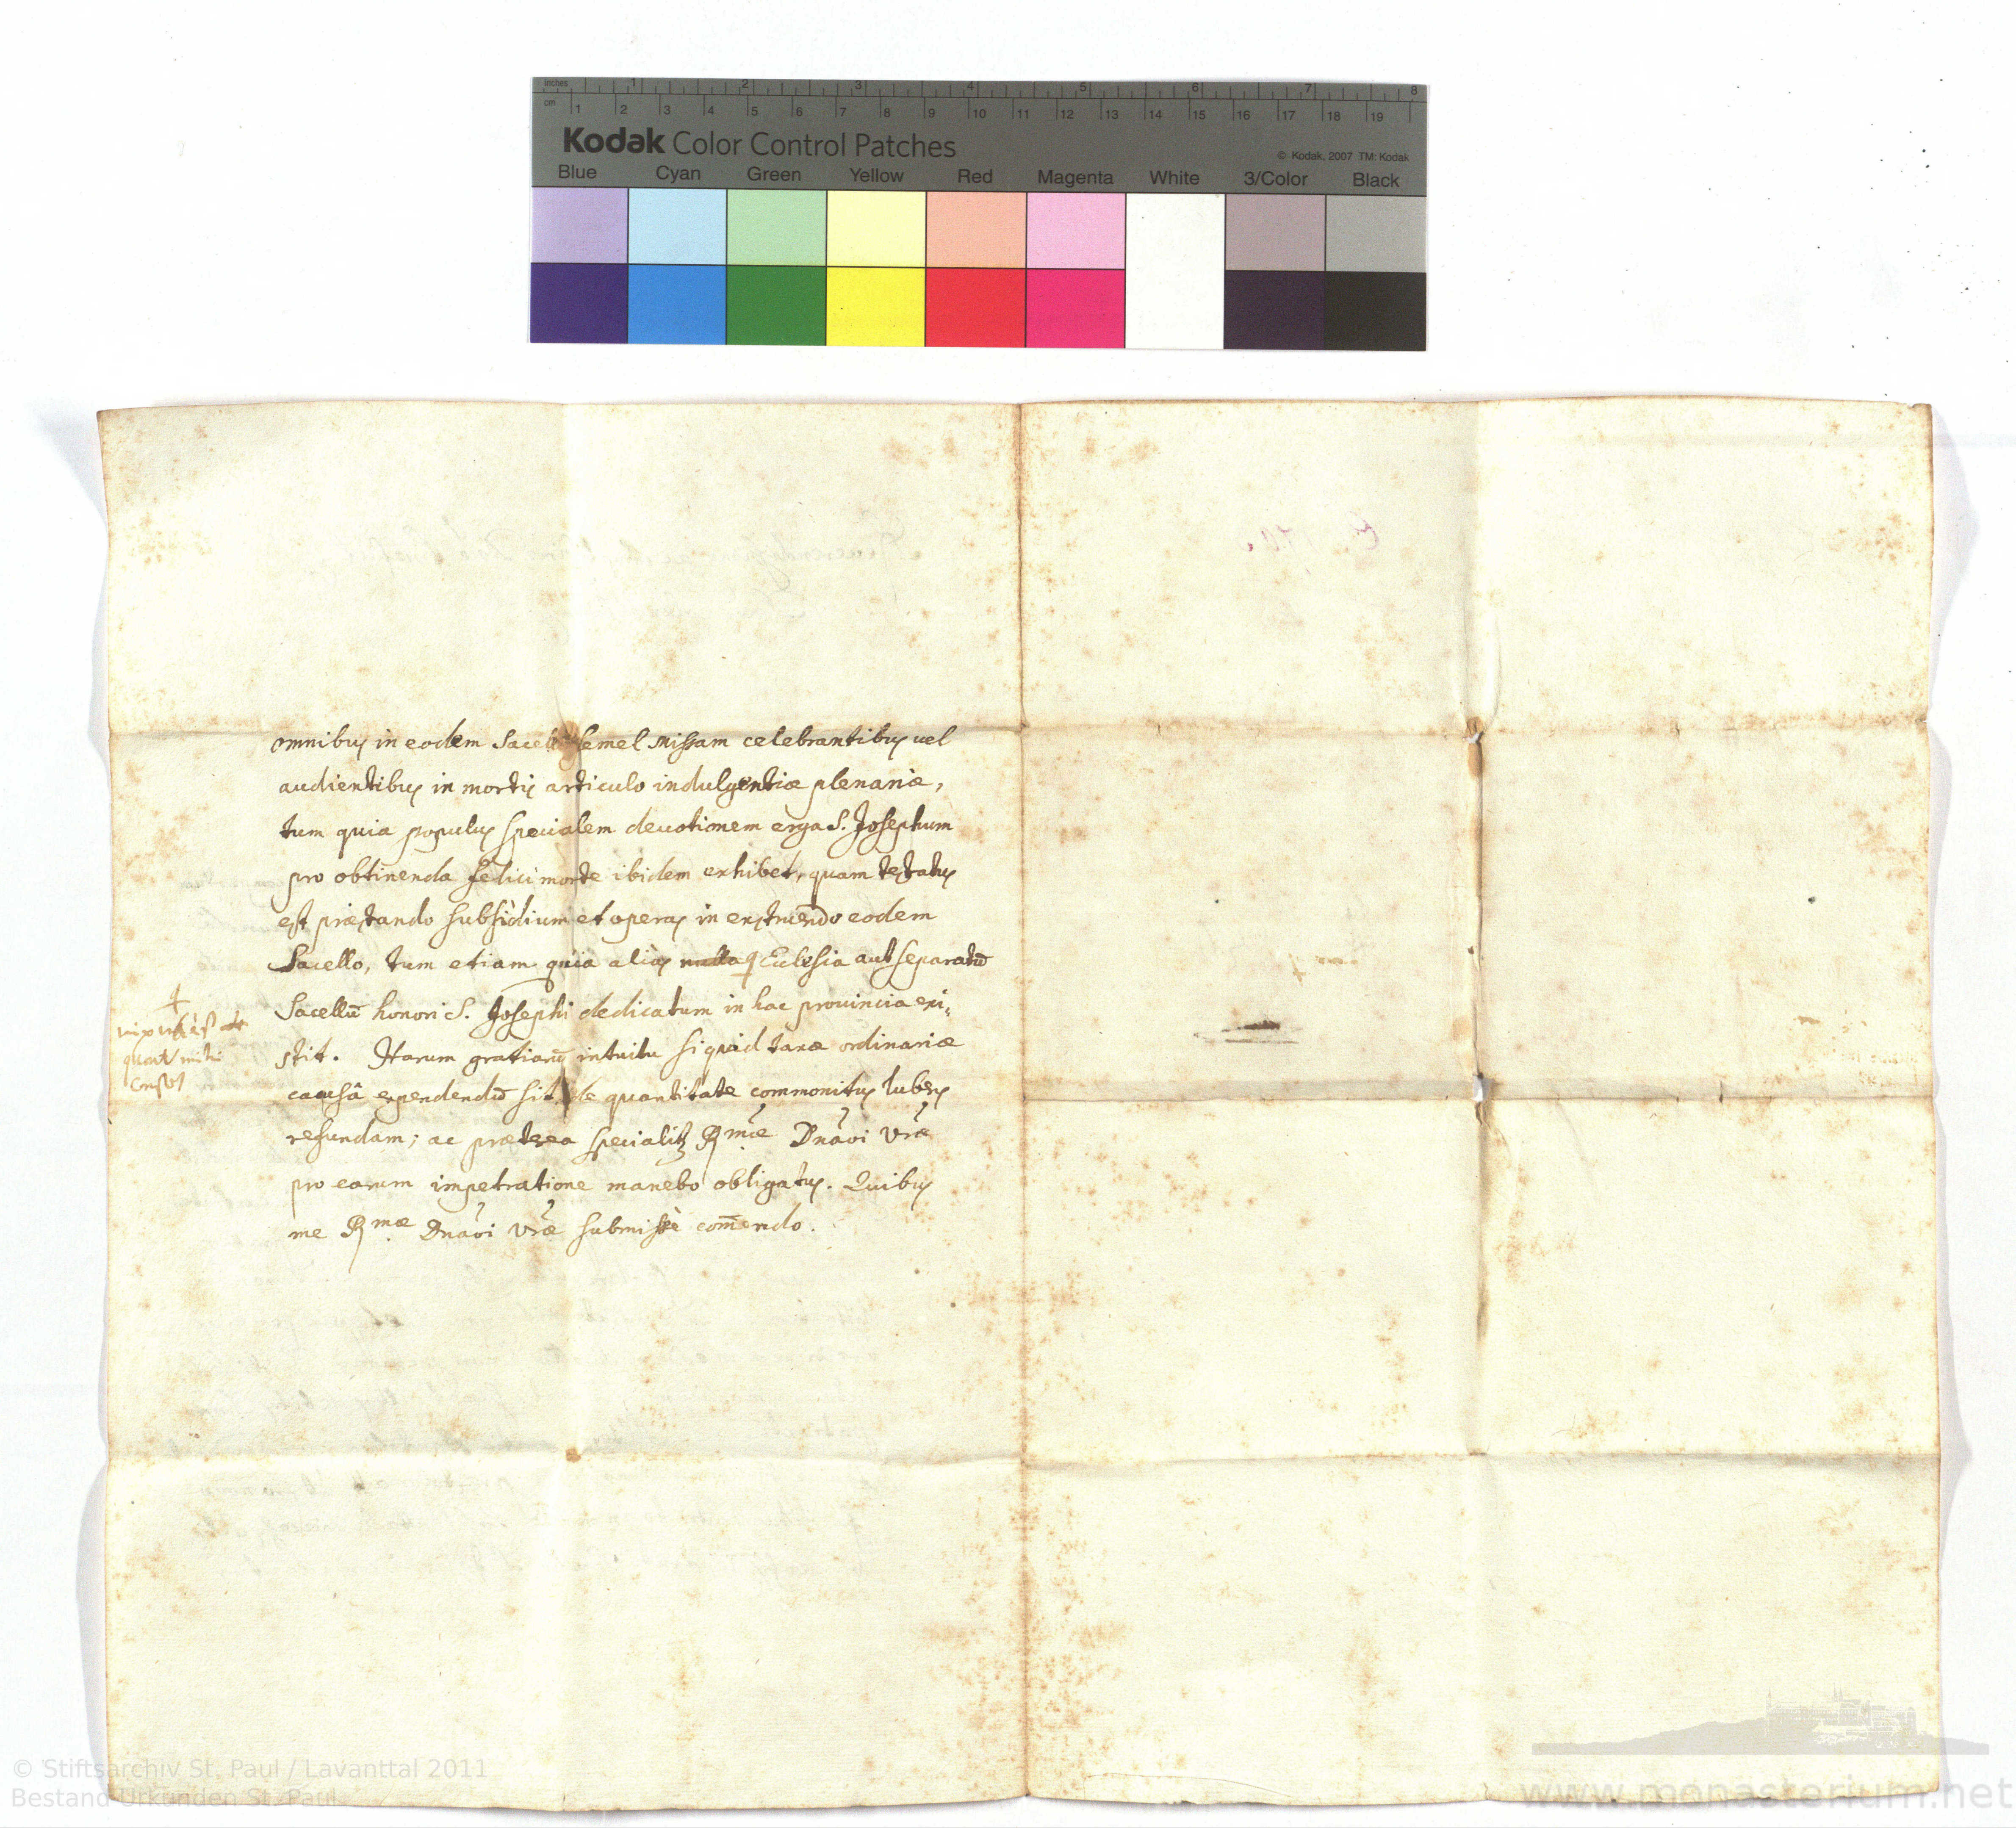 inches 1 2 3 4 5 6 7 8
cm 1 2 3 4 5 6 7 8 9 10 11 12 13 14 15 16 17 18 19
Kodak Color Control Patches
© Kodak, 2007 TM: Kodak
Blue Cyan Green Yellow Red Magenta White 3/Color Black
omnibus in eodem Sacello semel Missam celebrantibus uel
audientibus in mortis articulo indulgentiæ plenariæ,
tum quia populus specialem deuotionem erga S. Josephum
pro obtinenda felici morte ibidem exhibet, quam testatus
est præstando subsidium et operas in exstruendo eodem
Sacello, tum etiam quia alias nulla Ecclesia aut separatū
Sacellū honori S. Josephi dedicatum in hac prouincia exi-
stit. Harum gratiarū intuitu si quid taxæ ordinariæ
causâ expendendū sit, de quantitate commonitus lubens
refundam; ac præterea specialitr Rmæ Dnaõi Vræ
pro earum impetratione manebo obligatus. Quibus
me Rmæ Dnaõi Vræ submissè com̄endo.
quat mihi
const
© Stiftsarchiv St. Paul / Lavanttal 2011
Bestand Urkunden St. Paul
www.monasterium.net